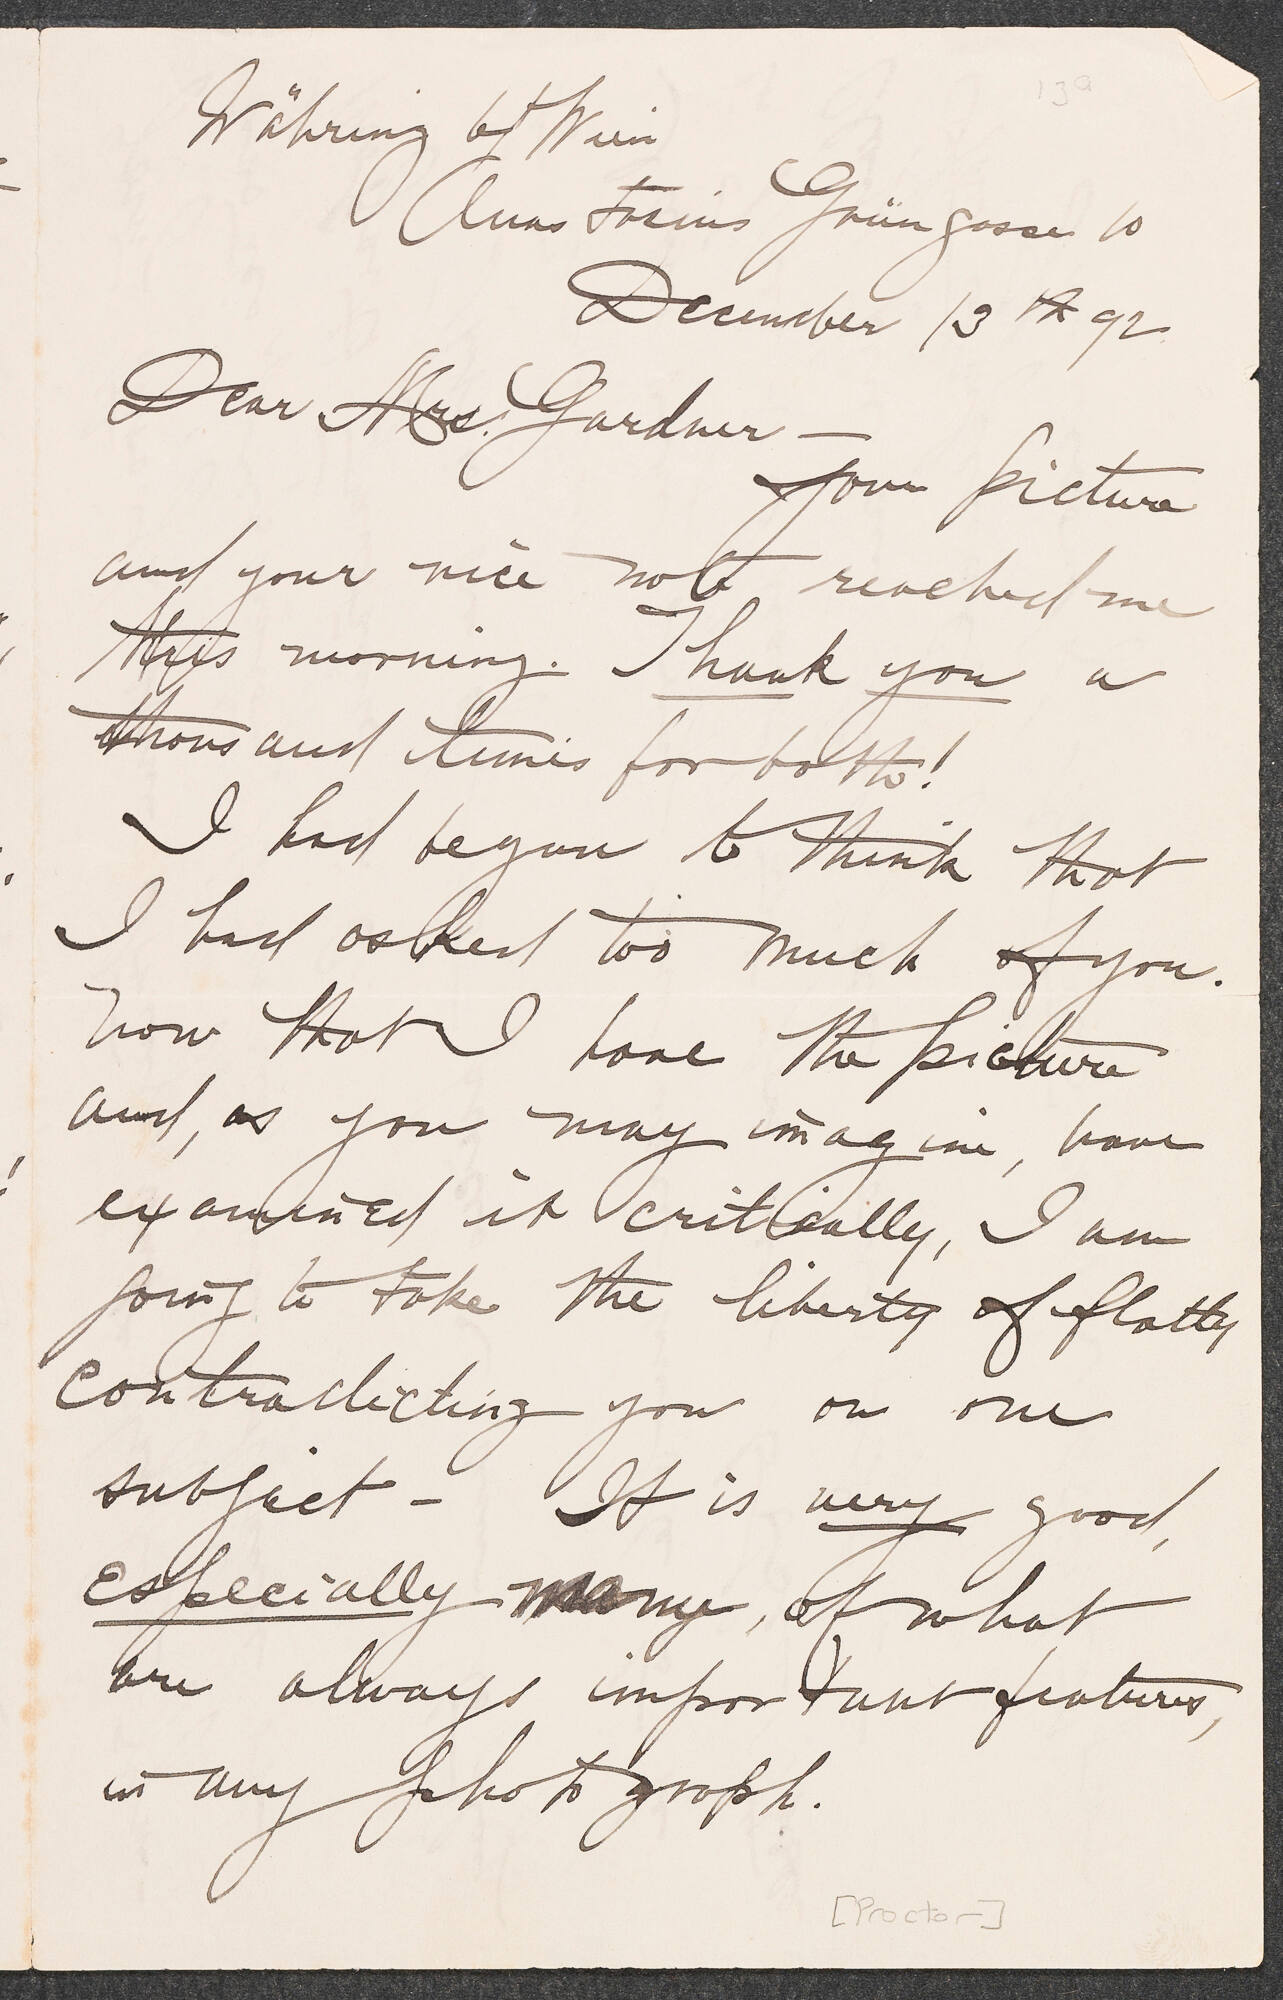 13a
Währing bei Wien
Anastasius Grüngasse 10
December 13th 92
Dear Mrs. Gardner —
Your picture
and your nice note reached me
this morning. Thank you a
thousand times for both!
I had begun to think that
I had asked too much of you.
Now that I have the picture
and, as you may imagine, have
examined it critically, I am
going to take the liberty of flatly
contradicting you on one
subject – It is very good,
especially many, of what
are always important features,
in any photograph.
[Proctor–]